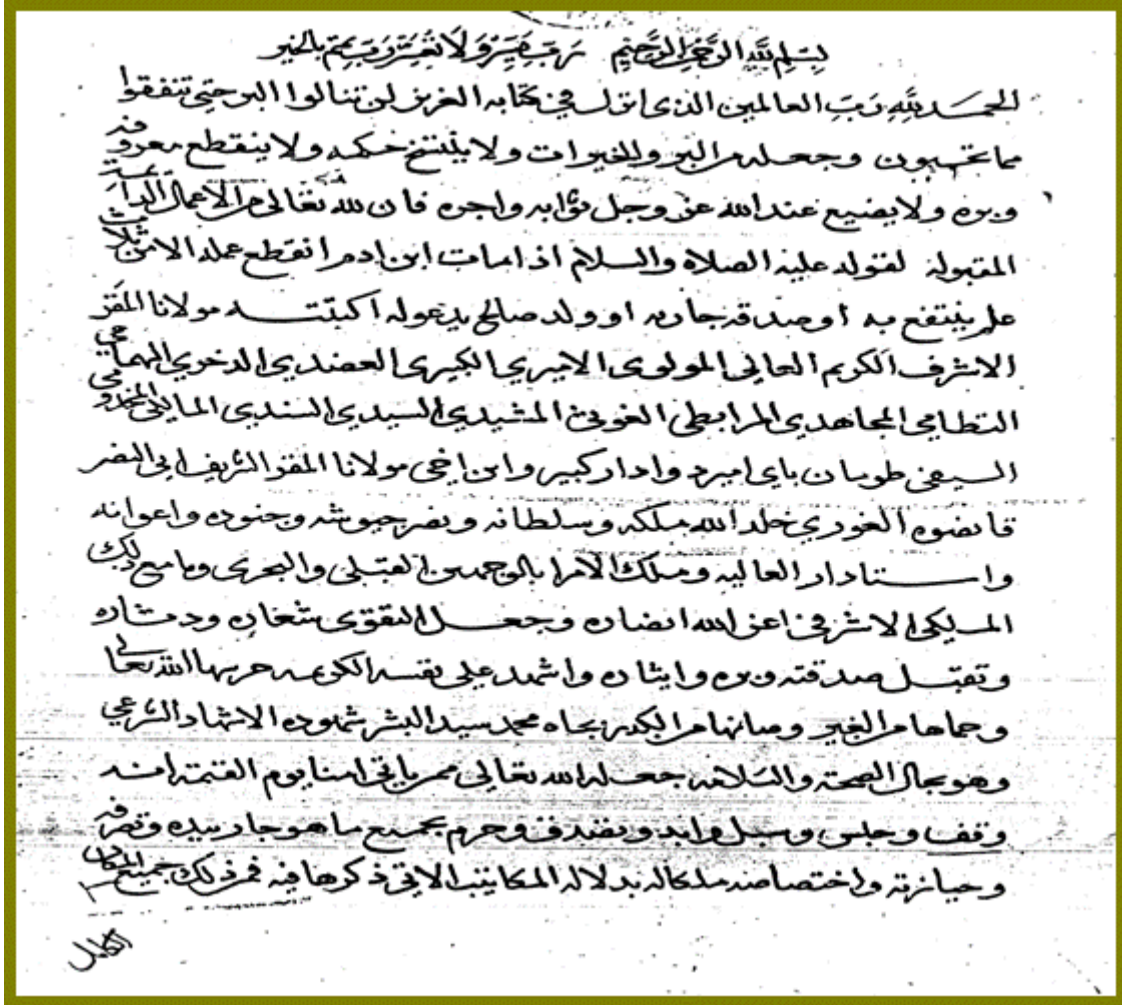 بسم الله الرحمن الرحيم رب يسر ولا تعسر رب تمم بالخير
الحمد لله رب العالمين الذى انزل في كتابه العزيز لن تنالوا البر حتى تنفقوا
مما تحبون وجعله من البر والخيرات ولا ينتسخ حكمه ولا ينقطع معروفه
وبره ولا يضيع عند الله عز وجل ثوابه واجره فان لله تعالى من الاعمال الدائمة
المقبوله لقوله عليه الصلاه والسلام اذا مات ابن ادم انقطع عمله الا من ثلاث
علم ينتفع به او صدقه جاريه او ولد صالح يدعوله مولانا المقر
الاشرف الكريم العالى المولوى الاميرى الكبيرى العضدي الذخرى الهمامي
النظامي المجاهدي المرابطى الغوثى المشيدي السيدي السندي المالكى المخدومي
السيفى طومان باى امير دوادار كبير وابن اخى مولانا المقر الشريف ابى النصر
قانصوه الغوري خلد الله ملكه وسلطانه ونصر جيوشه وجنوده واعوانه
واستادار العاليه وملك الامرا بالوجهين القبلى والبحرى وما مع ذلك
الملكى الاشرفى اعز الله انصاره وجعل التقوى شعاره ودثاره
وتقبل صدقته وبره وايثاره واشهد على نفسه الكريمه حرسها الله تعالى
وحماها من الغير وصانها من الكدر بجاه محمد سيد البشر شهوده الاشهاد الشرعي
وهو بحال الصحة والسلامه جعله الله تعالى ممن ياتى امنا يوم القيمة انه
وقف وحبس وسبل وابد وتصدق وحرم بجميع ما هو جار بيده وتصرفه
وحيازته واختصاصه ملكاله بدلاله المكاتيب الاتى ذكرها فيه فمن ذلك جميع المكان
الكامل